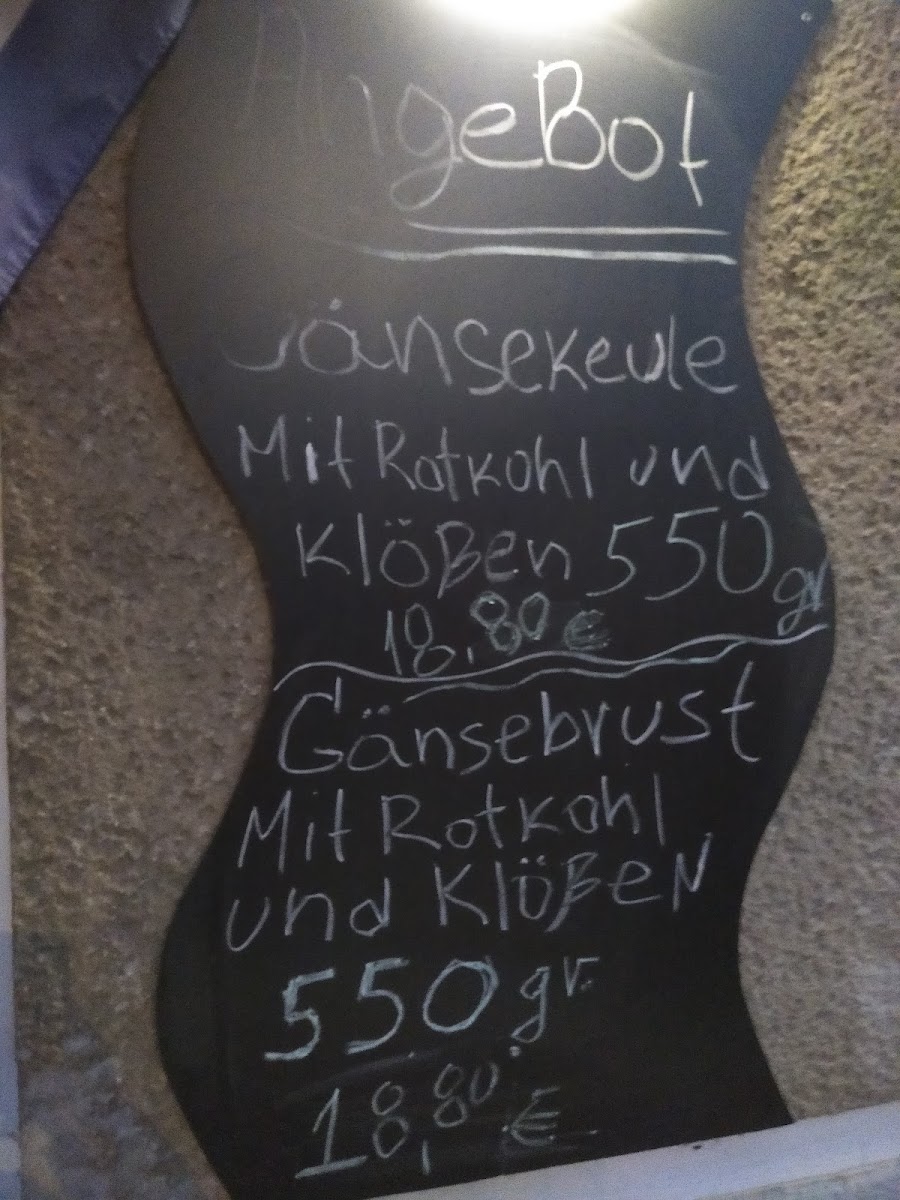 AngeBot
Gänsekeule
Mit Rotkohl und
Klößen 550 gr
18,80 €
Gänsebrust
Mit Rotkohl
und KlößeN
550 gr.
18,80 €